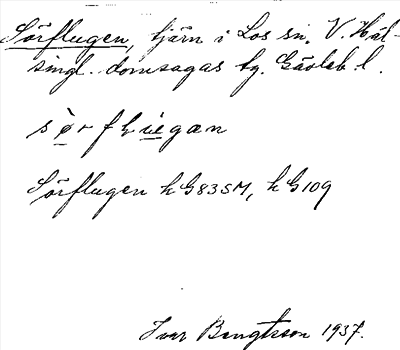 Sörflugen, tjärn i Los sn. V. Häl-
singl. domsagas tg. Gävleb. l.
Sörflugen k G83SM, k G109
Ivar Bengtsson 1937.